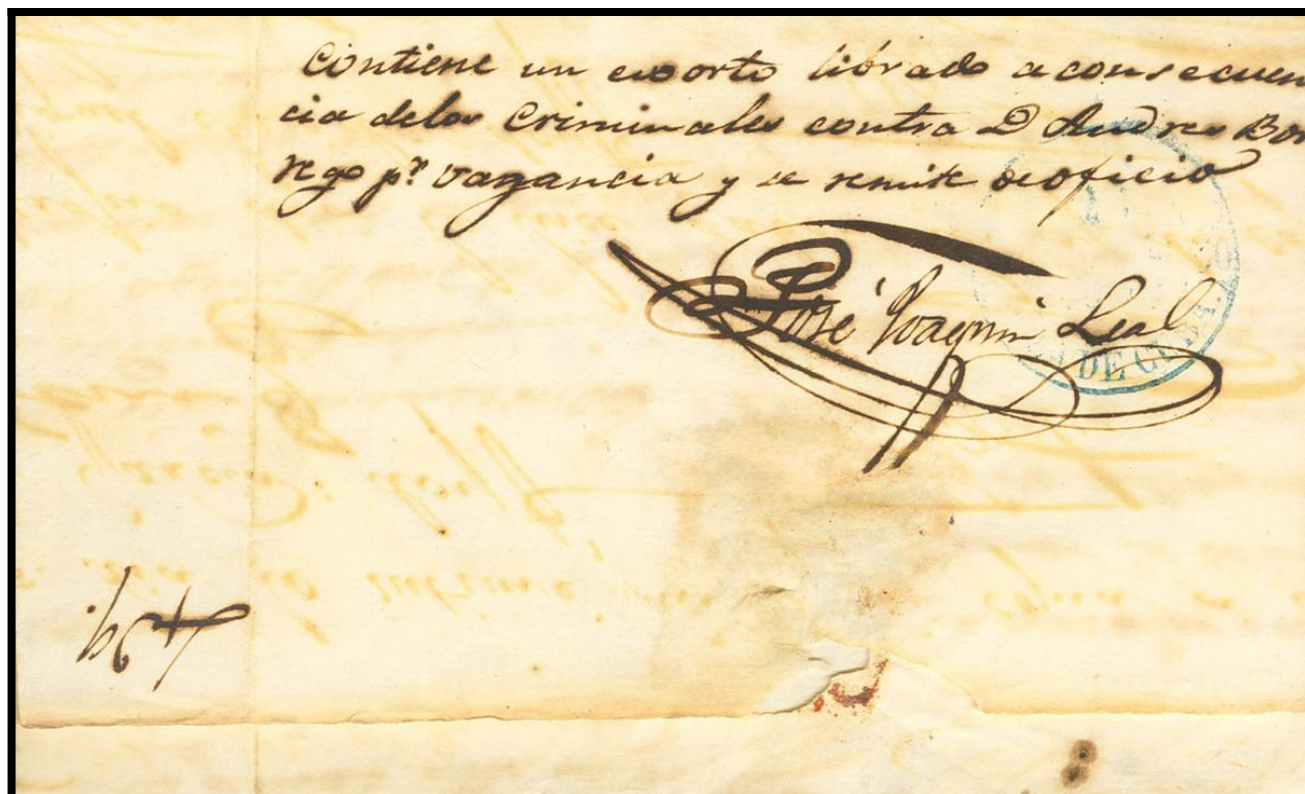 Contiene un exorto librado a consecuen
cia delos Criminales contra D Andres Bor
rego pr. vagancia y se remite de oficio
José Joaquin Leal
DE CUBA